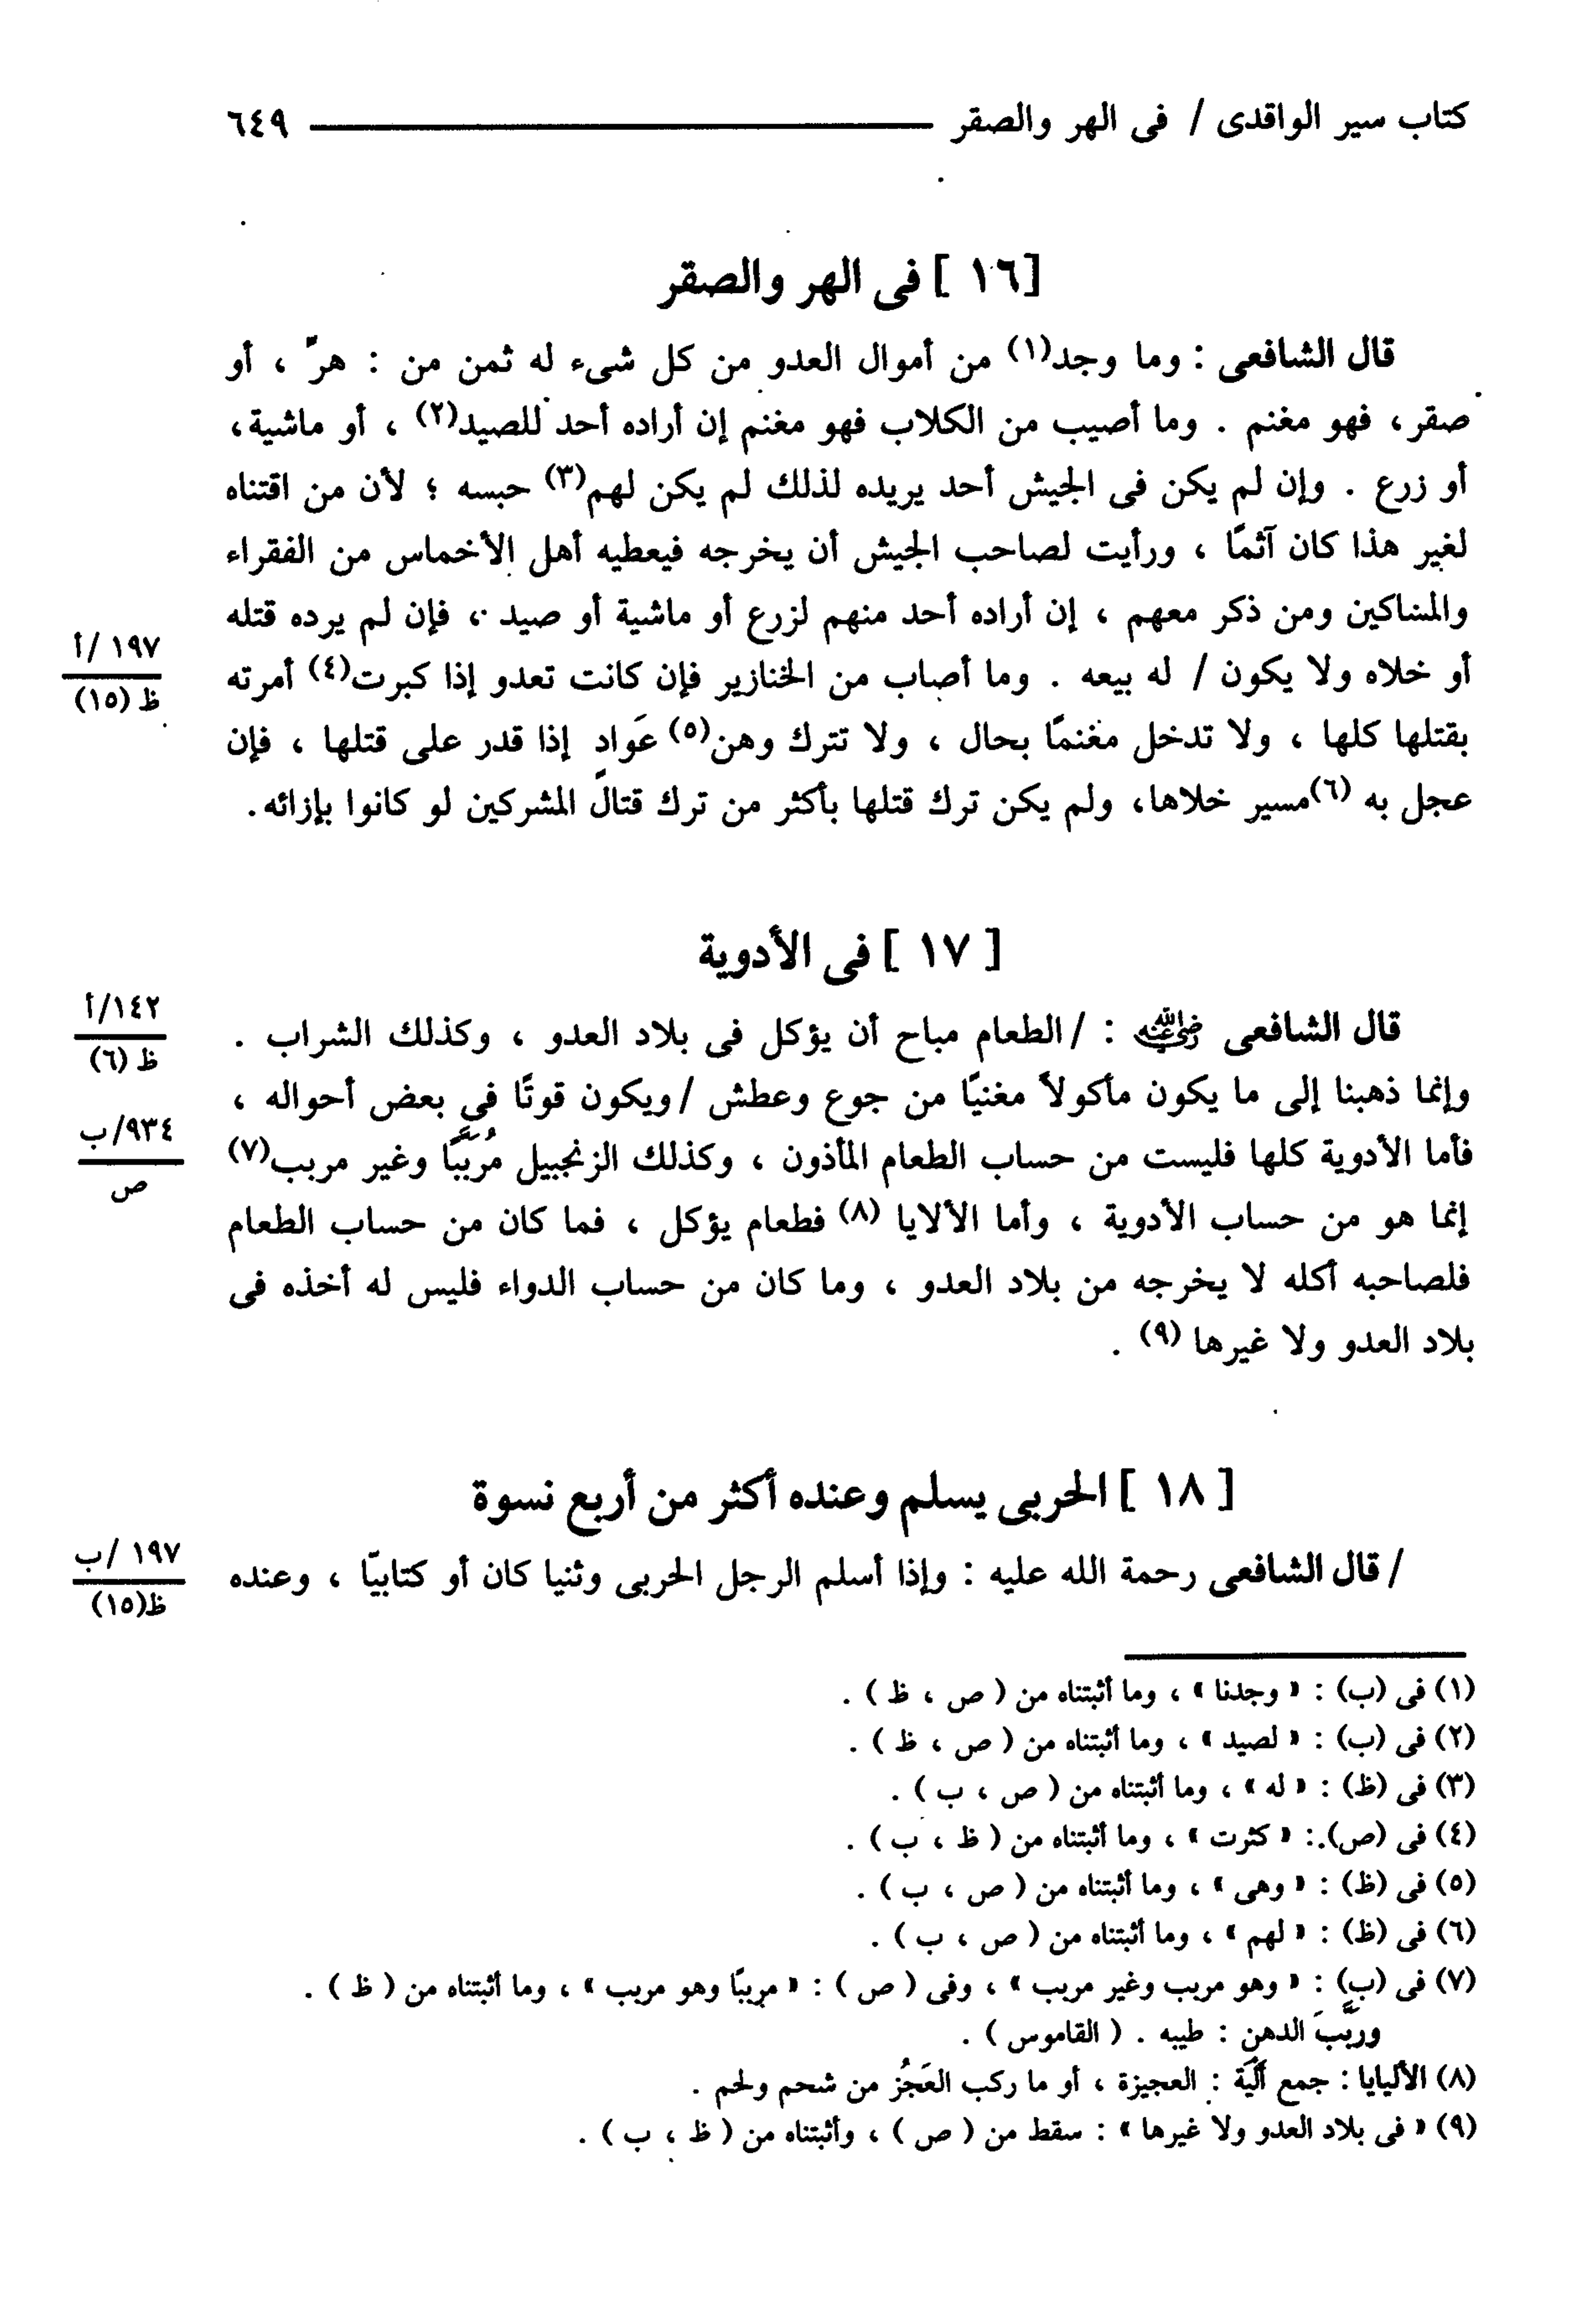 كتاب سير الواقدى / فى الهر والصقر ٦٤٩
[١٦ ] فى الهر والصقر
قال الشافعى : وما وجد(١) من أموال العدو من كل شىء له ثمن من : هرّ ، أو
صقر، فهو مغنم . وما أصيب من الكلاب فهو مغنم إن أراده أحد للصيد(٢) ، أو ماشية،
أو زرع . وإن لم يكن فى الجيش أحد يريده لذلك لم يكن لهم(٣) حبسه ؛ لأن من اقتناه
لغير هذا كان آثمًا ، ورأيت لصاحب الجيش أن يخرجه فيعطيه أهل الأخماس من الفقراء
والمساكين ومن ذكر معهم ، إن أراده أحد منهم لزرع أو ماشية أو صيد ، فإن لم يرده قتله
١٩٧ /أ
ظ (١٥)
أو خلاه ولا يكون / له بيعه . وما أصاب من الخنازير فإن كانت تعدو إذا كبرت(٤) أمرته
بقتلها كلها ، ولا تدخل مغنمًا بحال ، ولا تترك وهن(٥) عَوادٍ إذا قدر على قتلها ، فإن
عجل به (٦)مسير خلاها، ولم يكن ترك قتلها بأكثر من ترك قتال المشركين لو كانوا بإزائه.
[ ١٧ ] فى الأدوية
١٤٢/أ
ظ (٦)
قال الشافعى رضي الله عنه : /الطعام مباح أن يؤكل فى بلاد العدو ، وكذلك الشراب .
وإنما ذهبنا إلى ما يكون مأكولاً مغنيًا من جوع وعطش /ويكون قوتًا في بعض أحواله ،
٩٣٤/ب
ص
فأما الأدوية كلها فليست من حساب الطعام المأذون ، وكذلك الزنجبيل مُرَبَّبًا وغير مربب(٧)
إنما هو من حساب الأدوية ، وأما الألايا (٨) فطعام يؤكل ، فما كان من حساب الطعام
فلصاحبه أكله لا يخرجه من بلاد العدو ، وما كان من حساب الدواء فليس له أخذه فى
بلاد العدو ولا غيرها (٩) .
[ ١٨ ] الحربى يسلم وعنده أكثر من أربع نسوة
١٩٧ /ب
ظ(١٥)
/ قال الشافعى رحمة الله عليه : وإذا أسلم الرجل الحربى وثنيا كان أو كتابيّا ، وعنده
(١) فى (ب) : « وجدنا » ، وما أثبتناه من ( ص ، ظ ) .
(٢) فى (ب) : « لصيد » ، وما أثبتناه من ( ص ، ظ ) .
(٣) فى (ظ) : « له » ، وما أثبتناه من ( ص ، ب ) .
(٤) فى (ص) : « كثرت » ، وما أثبتناه من ( ظ ، ب ) .
(٥) فى (ظ) : « وهى » ، وما أثبتناه من ( ص ، ب ) .
(٦) فى (ظ) : « لهم » ، وما أثبتناه من ( ص ، ب ) .
(٧) فى (ب) : « وهو مربب وغير مربب » ، وفى ( ص ) : « مرببًا وهو مربب » ، وما أثبتناه من ( ظ ) .
وربَّبَ الدهن : طيبه . ( القاموس ) .
(٨) الأليايا : جمع أَلْيَة : العجيزة ، أو ما ركب العَجُز من شحم ولحم .
(٩) « فى بلاد العدو ولا غيرها » : سقط من ( ص ) ، وأثبتناه من ( ظ ، ب ) .